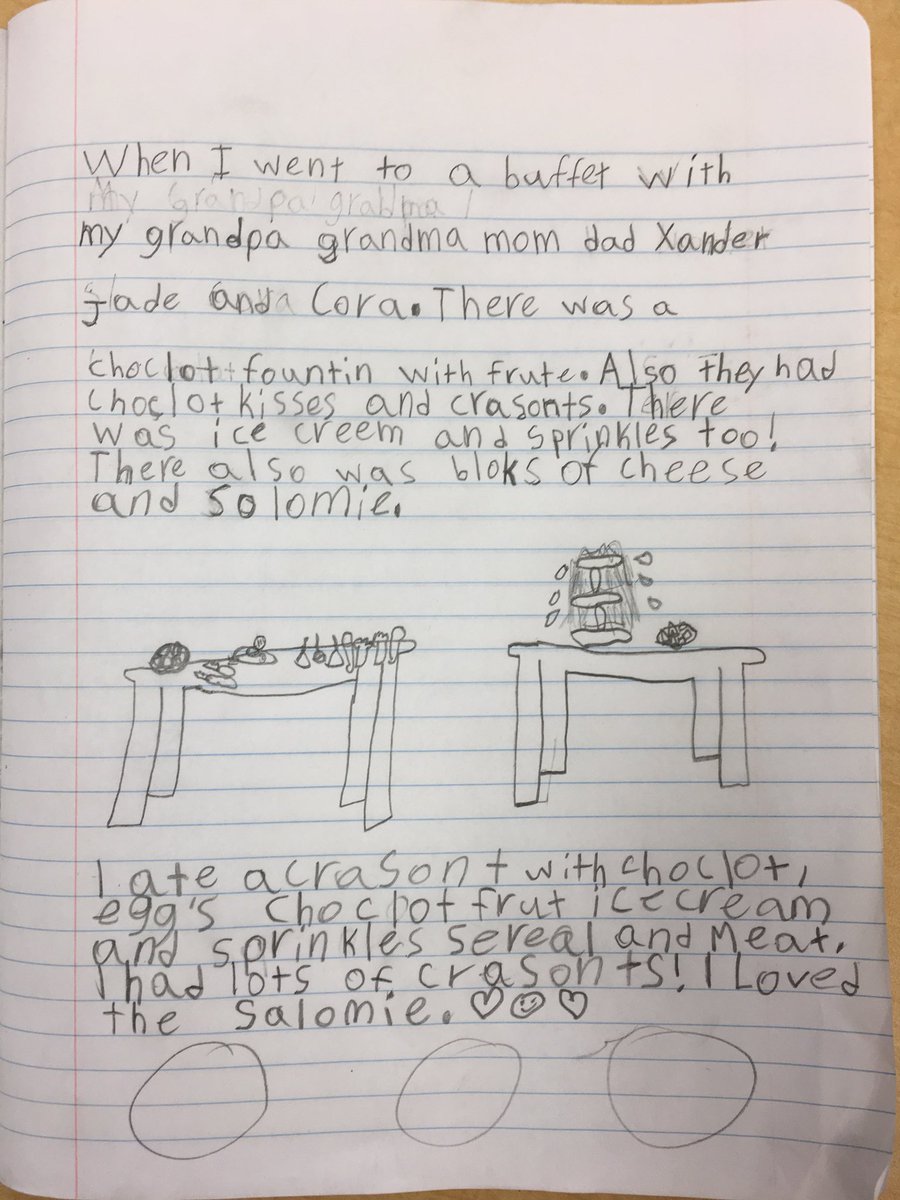 When I went to a buffet with
my grandpa grandma mom dad Xander
Jade and Cora. There was a
choclot fountin with frute. Also they had
choclot kisses and crasonts. There
was ice creem and sprinkles too!
There also was bloks of cheese
and Solomie.
I ate a crasont with choclot,
egg's choclot frut icecream
and sprinkles sereal and meat.
I had lots of crasonts! I Loved
the Salomie.